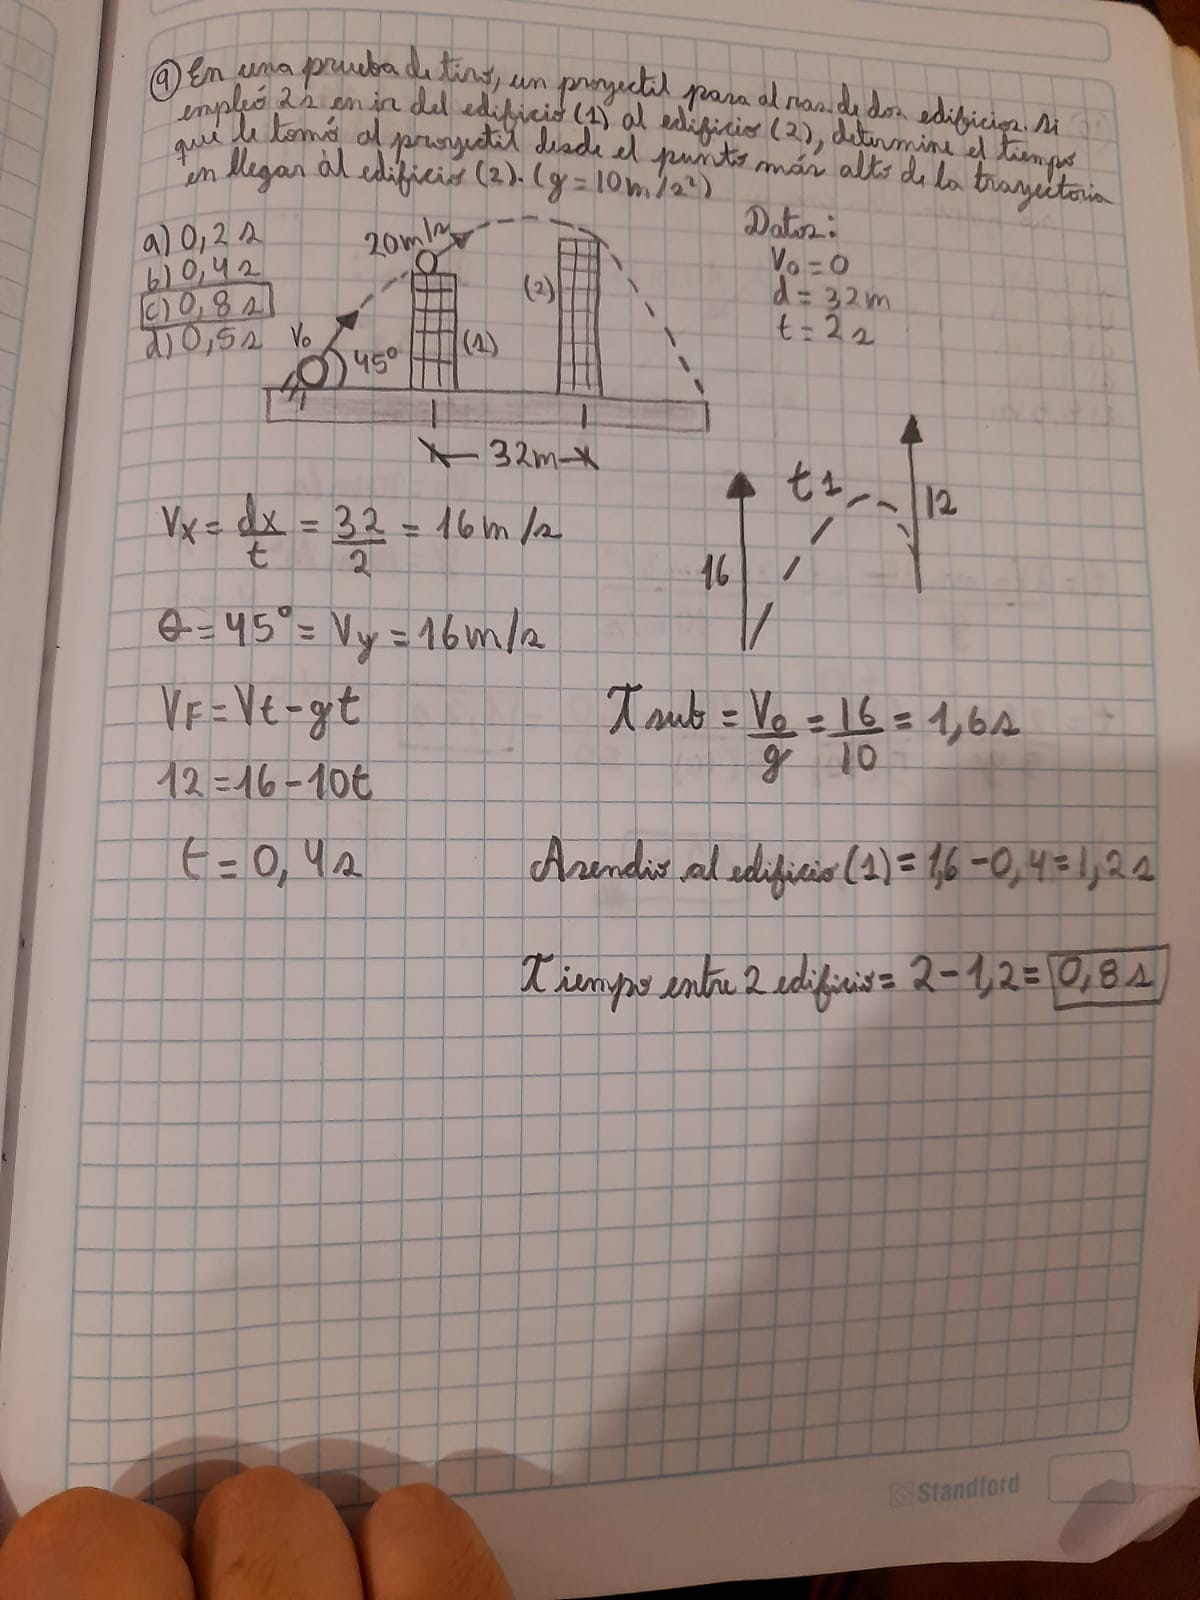 9) En una prueba de tiro, un proyectil pasa al ras de dos edificios. si
empleó 2s en ir del edificio (1) al edificio (2), determine el tiempo
que le tomó al proyectil desde el punto más alto de la trayectoria
en llegar al edificio (2). (g = 10 m/s²)
a) 0,2 s
b) 0,4 s
c) 0,8 s
d) 0,5 s
20 m/s
V₀
45°
(1)
(2)
32m
Datos:
V₀ = 0
d = 32 m
t = 2 s
16
t 1
12
Vx = dx/t = 32/2 = 16 m/s
θ = 45° = Vy = 16 m/s
VF = Vt - gt
12 = 16 - 10t
t = 0,4 s
T sub = V₀/g = 16/10 = 1,6 s
Asendio al edificio (1) = 1,6 - 0,4 = 1,2 s
Tiempo entre 2 edificio = 2 - 1,2 = 0,8 s
Standford